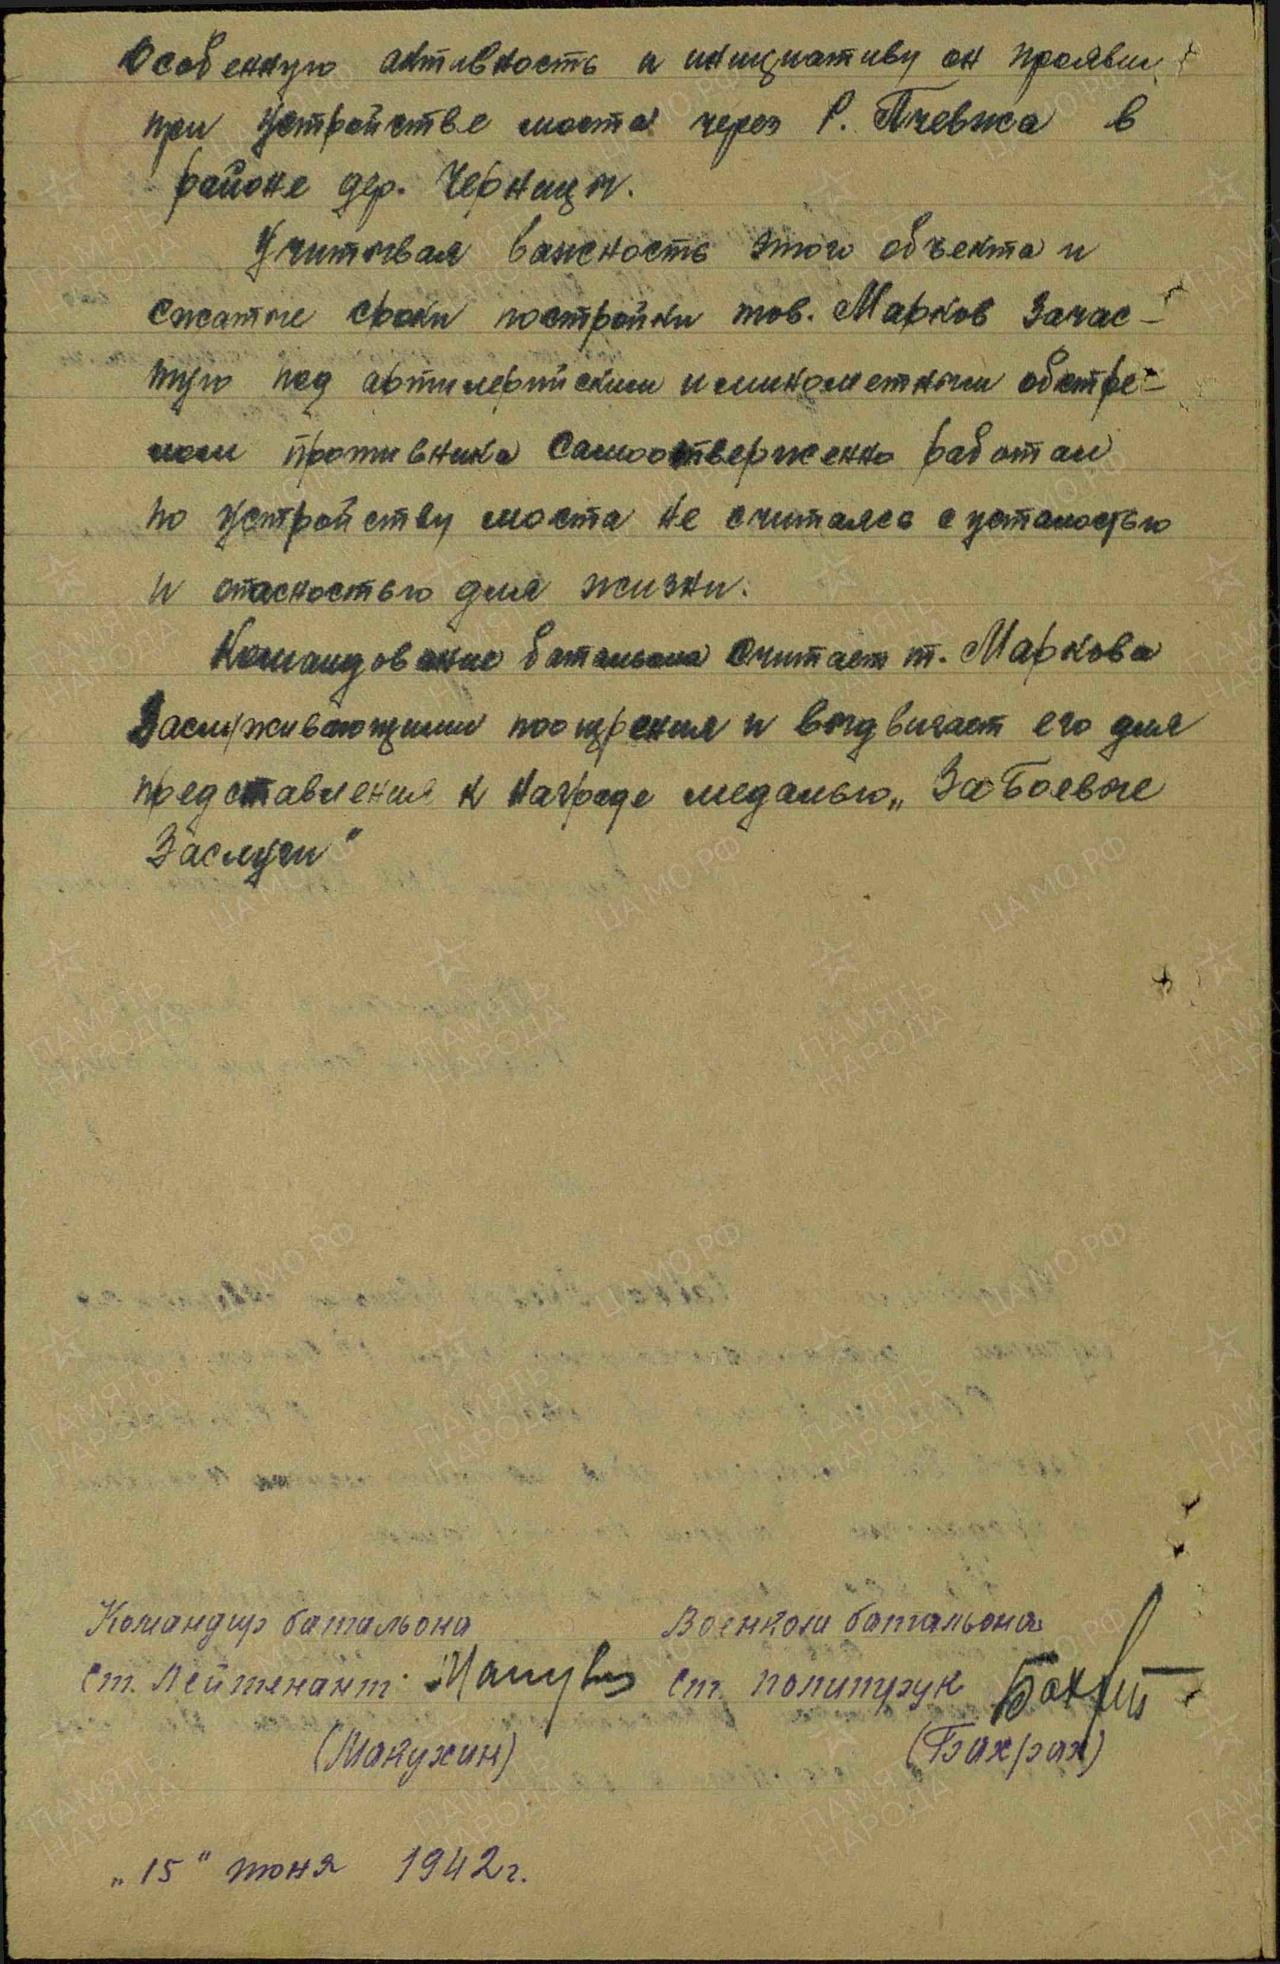 Особенную активность и инициативу он проявил
при устройстве моста через р. Пчевжа в
районе дер. Черницы.
Учитывая важность этого объекта и
сжатые сроки постройки тов. Марков зачас-
тую под артилерийским и минометным обстре-
лом противника самоотверженно работал
по устройству моста не считаясь с усталостью
и опасностью для жизни.
Командование батальона считает т. Маркова
заслуживающими поощрения и выдвигает его для
представления к награде медалью „За Боевые
Заслуги"
Командир батальона Военком батальона
ст. Лейтенант ст. политрук
(Манухин) (Бахрах)
„15" июня 1942 г.
ПАМЯТЬ НАРОДА
ЦА МО РФ